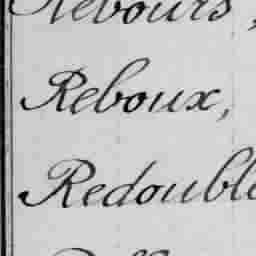 Rebours,
Reboux,
Redouble